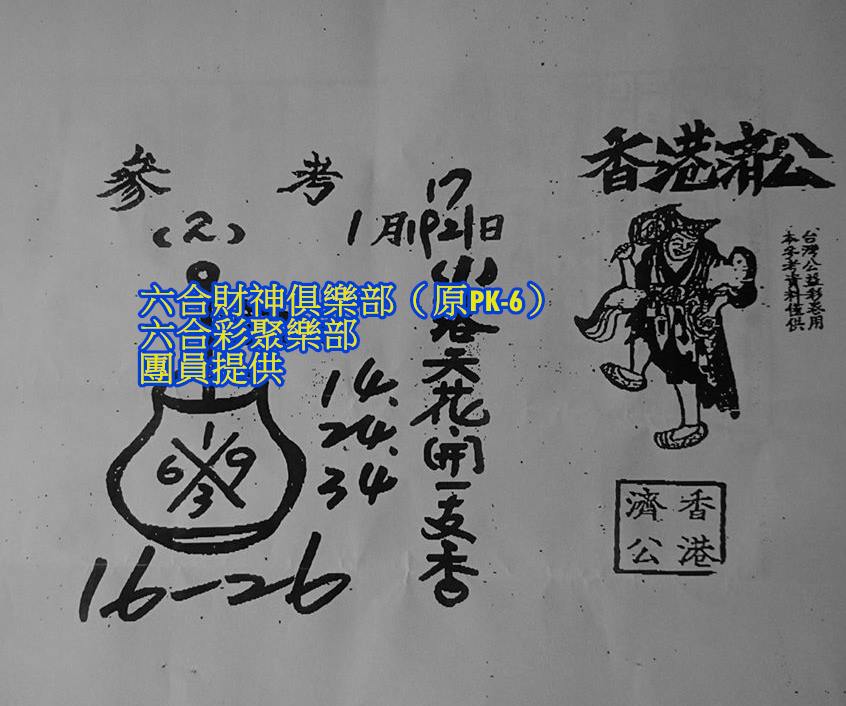 香港濟公
台灣公益彩卷用
本參考資料僅供
香港
濟公
參考
17
1月1921日
(1)
天花(開)一支香
(2)
六合財神俱樂部（原PK-6）
六合彩聚樂部
團員提供
14.
24.
34
1
6 9
3
16-26